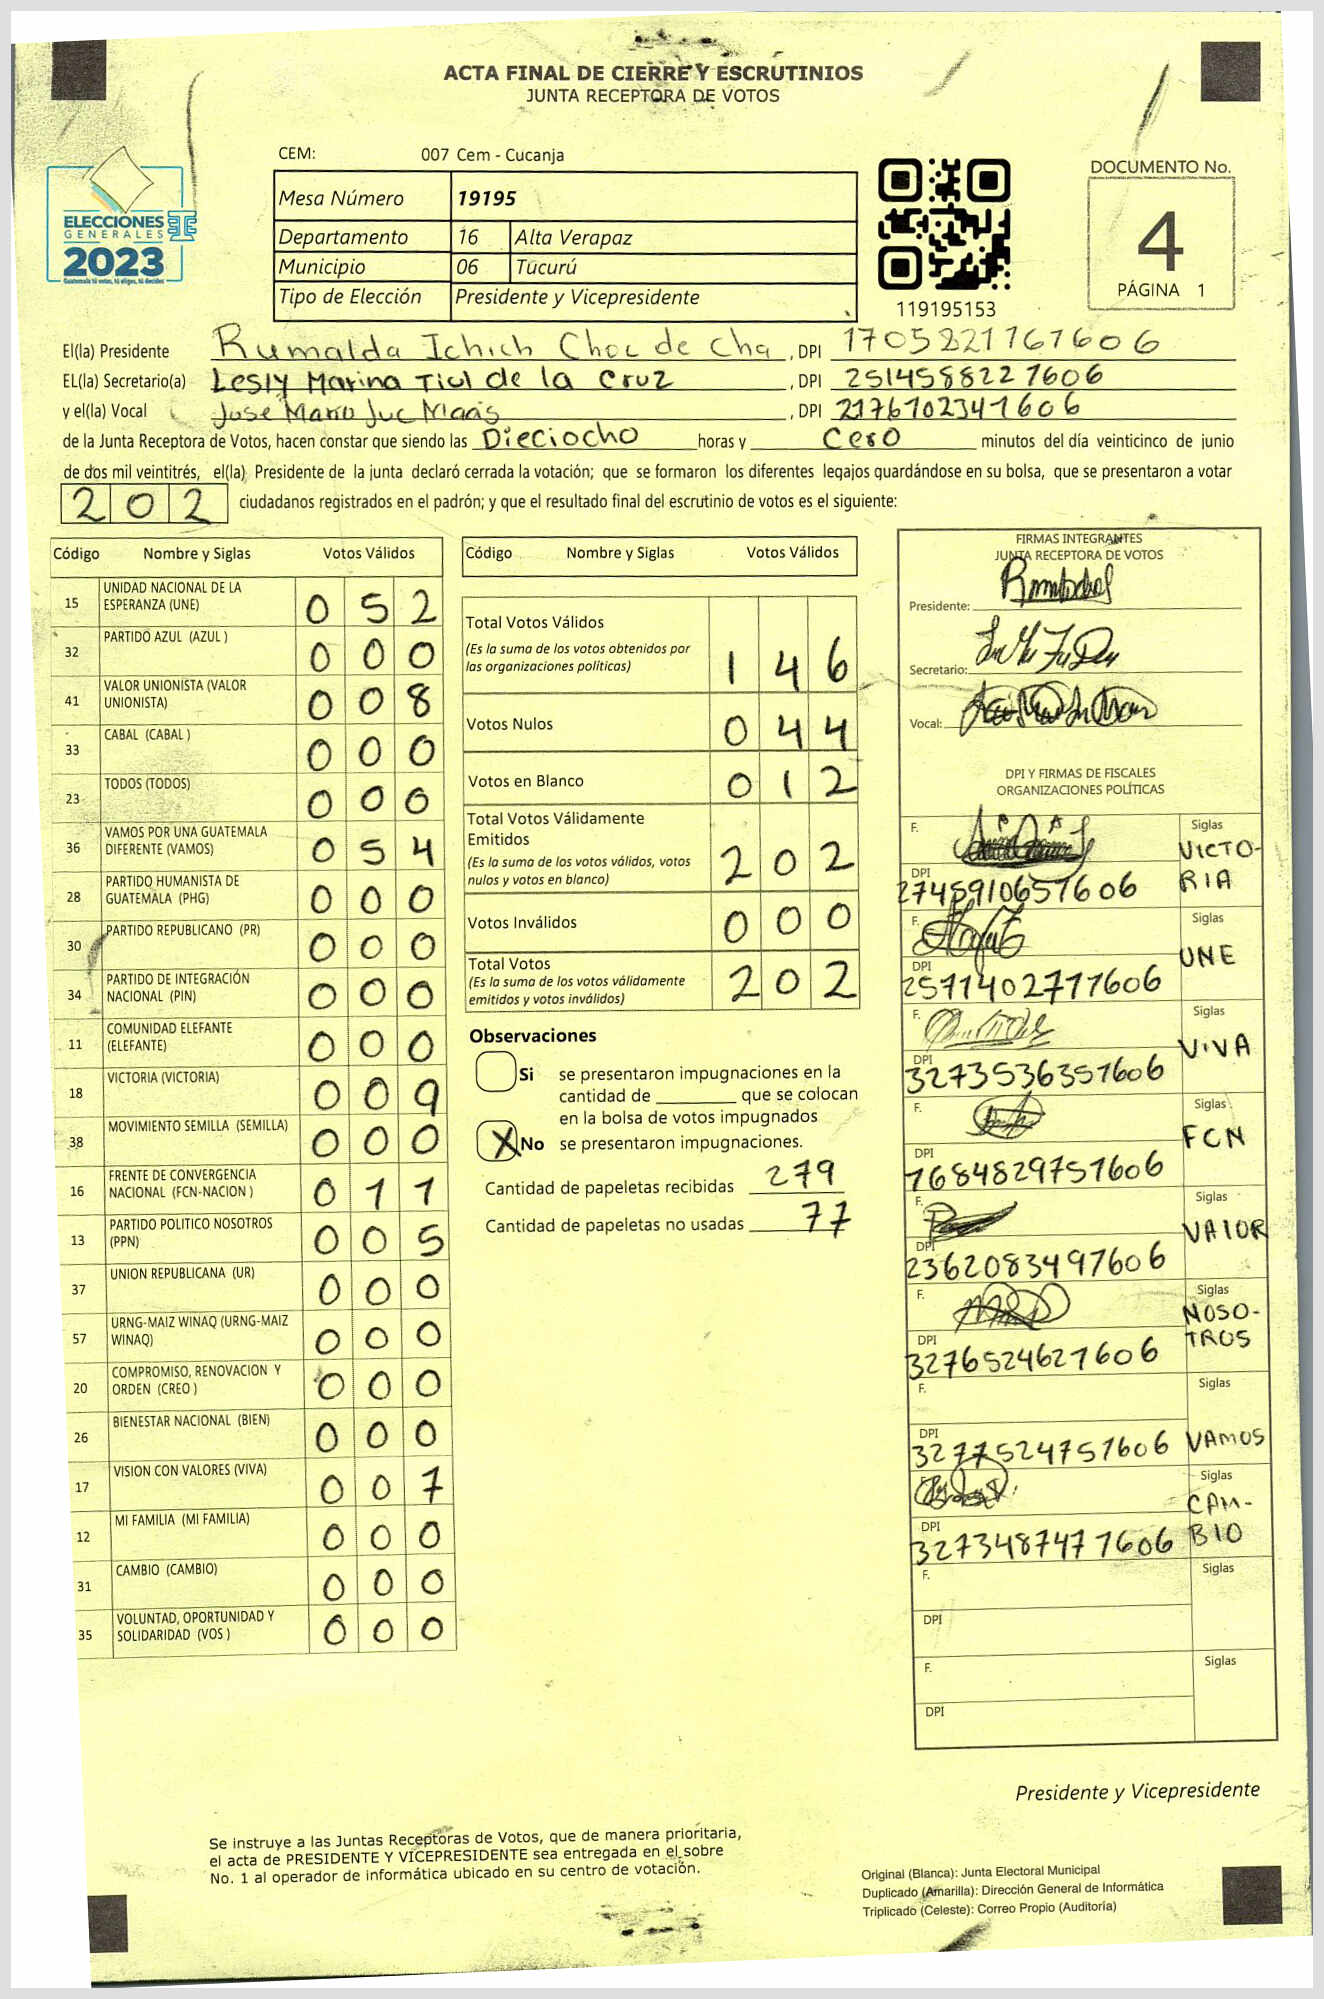 ACTA FINAL DE CIERRE Y ESCRUTINIOS
JUNTA RECEPTORA DE VOTOS
ELECCIONES
GENERALES
2023
CEM: 007 Cem - Cucanja
Mesa Número 19195
Departamento 16 Alta Verapaz
Municipio 06 Tucurú
Tipo de Elección Presidente y Vicepresidente
119195153
DOCUMENTO No.
4
PÁGINA 1
El(la) Presidente Rumalda Ichich Choc de Cha, DPI 1705821767606
EL(la) Secretario(a) Lesly Marina Tiul de la Cruz, DPI 2514588227606
y el(la) Vocal Jose Mario Juc Maas, DPI 2176702347606
de la Junta Receptora de Votos, hacen constar que siendo las Dieciocho horas y Cero minutos del día veinticinco de junio
de dos mil veintitrés, el(la) Presidente de la junta declaró cerrada la votación; que se formaron los diferentes legajos guardándose en su bolsa, que se presentaron a votar
202 ciudadanos registrados en el padrón; y que el resultado final del escrutinio de votos es el siguiente:
Código Nombre y Siglas Votos Válidos
15 UNIDAD NACIONAL DE LA ESPERANZA (UNE) 0 5 2
32 PARTIDO AZUL (AZUL ) 0 0 0
41 VALOR UNIONISTA (VALOR UNIONISTA) 0 0 8
33 CABAL (CABAL ) 0 0 0
23 TODOS (TODOS) 0 0 0
36 VAMOS POR UNA GUATEMALA DIFERENTE (VAMOS) 0 5 4
28 PARTIDO HUMANISTA DE GUATEMALA (PHG) 0 0 0
30 PARTIDO REPUBLICANO (PR) 0 0 0
34 PARTIDO DE INTEGRACIÓN NACIONAL (PIN) 0 0 0
11 COMUNIDAD ELEFANTE (ELEFANTE) 0 0 0
18 VICTORIA (VICTORIA) 0 0 9
38 MOVIMIENTO SEMILLA (SEMILLA) 0 0 0
16 FRENTE DE CONVERGENCIA NACIONAL (FCN-NACION ) 0 1 1
13 PARTIDO POLITICO NOSOTROS (PPN) 0 0 5
37 UNION REPUBLICANA (UR) 0 0 0
57 URNG-MAIZ WINAQ (URNG-MAIZ WINAQ) 0 0 0
20 COMPROMISO, RENOVACION Y ORDEN (CREO ) 0 0 0
26 BIENESTAR NACIONAL (BIEN) 0 0 0
17 VISION CON VALORES (VIVA) 0 0 7
12 MI FAMILIA (MI FAMILIA) 0 0 0
31 CAMBIO (CAMBIO) 0 0 0
35 VOLUNTAD, OPORTUNIDAD Y SOLIDARIDAD (VOS ) 0 0 0
Código Nombre y Siglas Votos Válidos
Total Votos Válidos 1 4 6
(Es la suma de los votos obtenidos por
las organizaciones políticas)
Votos Nulos 0 4 4
Votos en Blanco 0 1 2
Total Votos Válidamente
Emitidos 2 0 2
(Es la suma de los votos válidos, votos
nulos y votos en blanco)
Votos Inválidos 0 0 0
Total Votos 2 0 2
(Es la suma de los votos válidamente
emitidos y votos inválidos)
Observaciones
Si se presentaron impugnaciones en la
cantidad de ________ que se colocan
en la bolsa de votos impugnados
X No se presentaron impugnaciones.
Cantidad de papeletas recibidas 279
Cantidad de papeletas no usadas 77
FIRMAS INTEGRANTES
JUNTA RECEPTORA DE VOTOS
Presidente:
Secretario:
Vocal:
DPI Y FIRMAS DE FISCALES
ORGANIZACIONES POLÍTICAS
F. Siglas VICTO-
RIA
DPI 2745910657606
F. Siglas UNE
DPI 2571402777606
F. Siglas VIVA
DPI 3273536357606
F. Siglas FCN
DPI 1684829757606
F. Siglas VALOR
DPI 2362083497606
F. Siglas NOSO-
TROS
DPI 3276524627606
F. Siglas VAMOS
DPI 3277524757606
F. Siglas CAM-
BIO
DPI 3273487477606
F. Siglas
DPI
F. Siglas
DPI
Presidente y Vicepresidente
Se instruye a las Juntas Receptoras de Votos, que de manera prioritaria,
el acta de PRESIDENTE Y VICEPRESIDENTE sea entregada en el sobre
No. 1 al operador de informática ubicado en su centro de votación.
Original (Blanca): Junta Electoral Municipal
Duplicado (Amarilla): Dirección General de Informática
Triplicado (Celeste): Correo Propio (Auditoría)